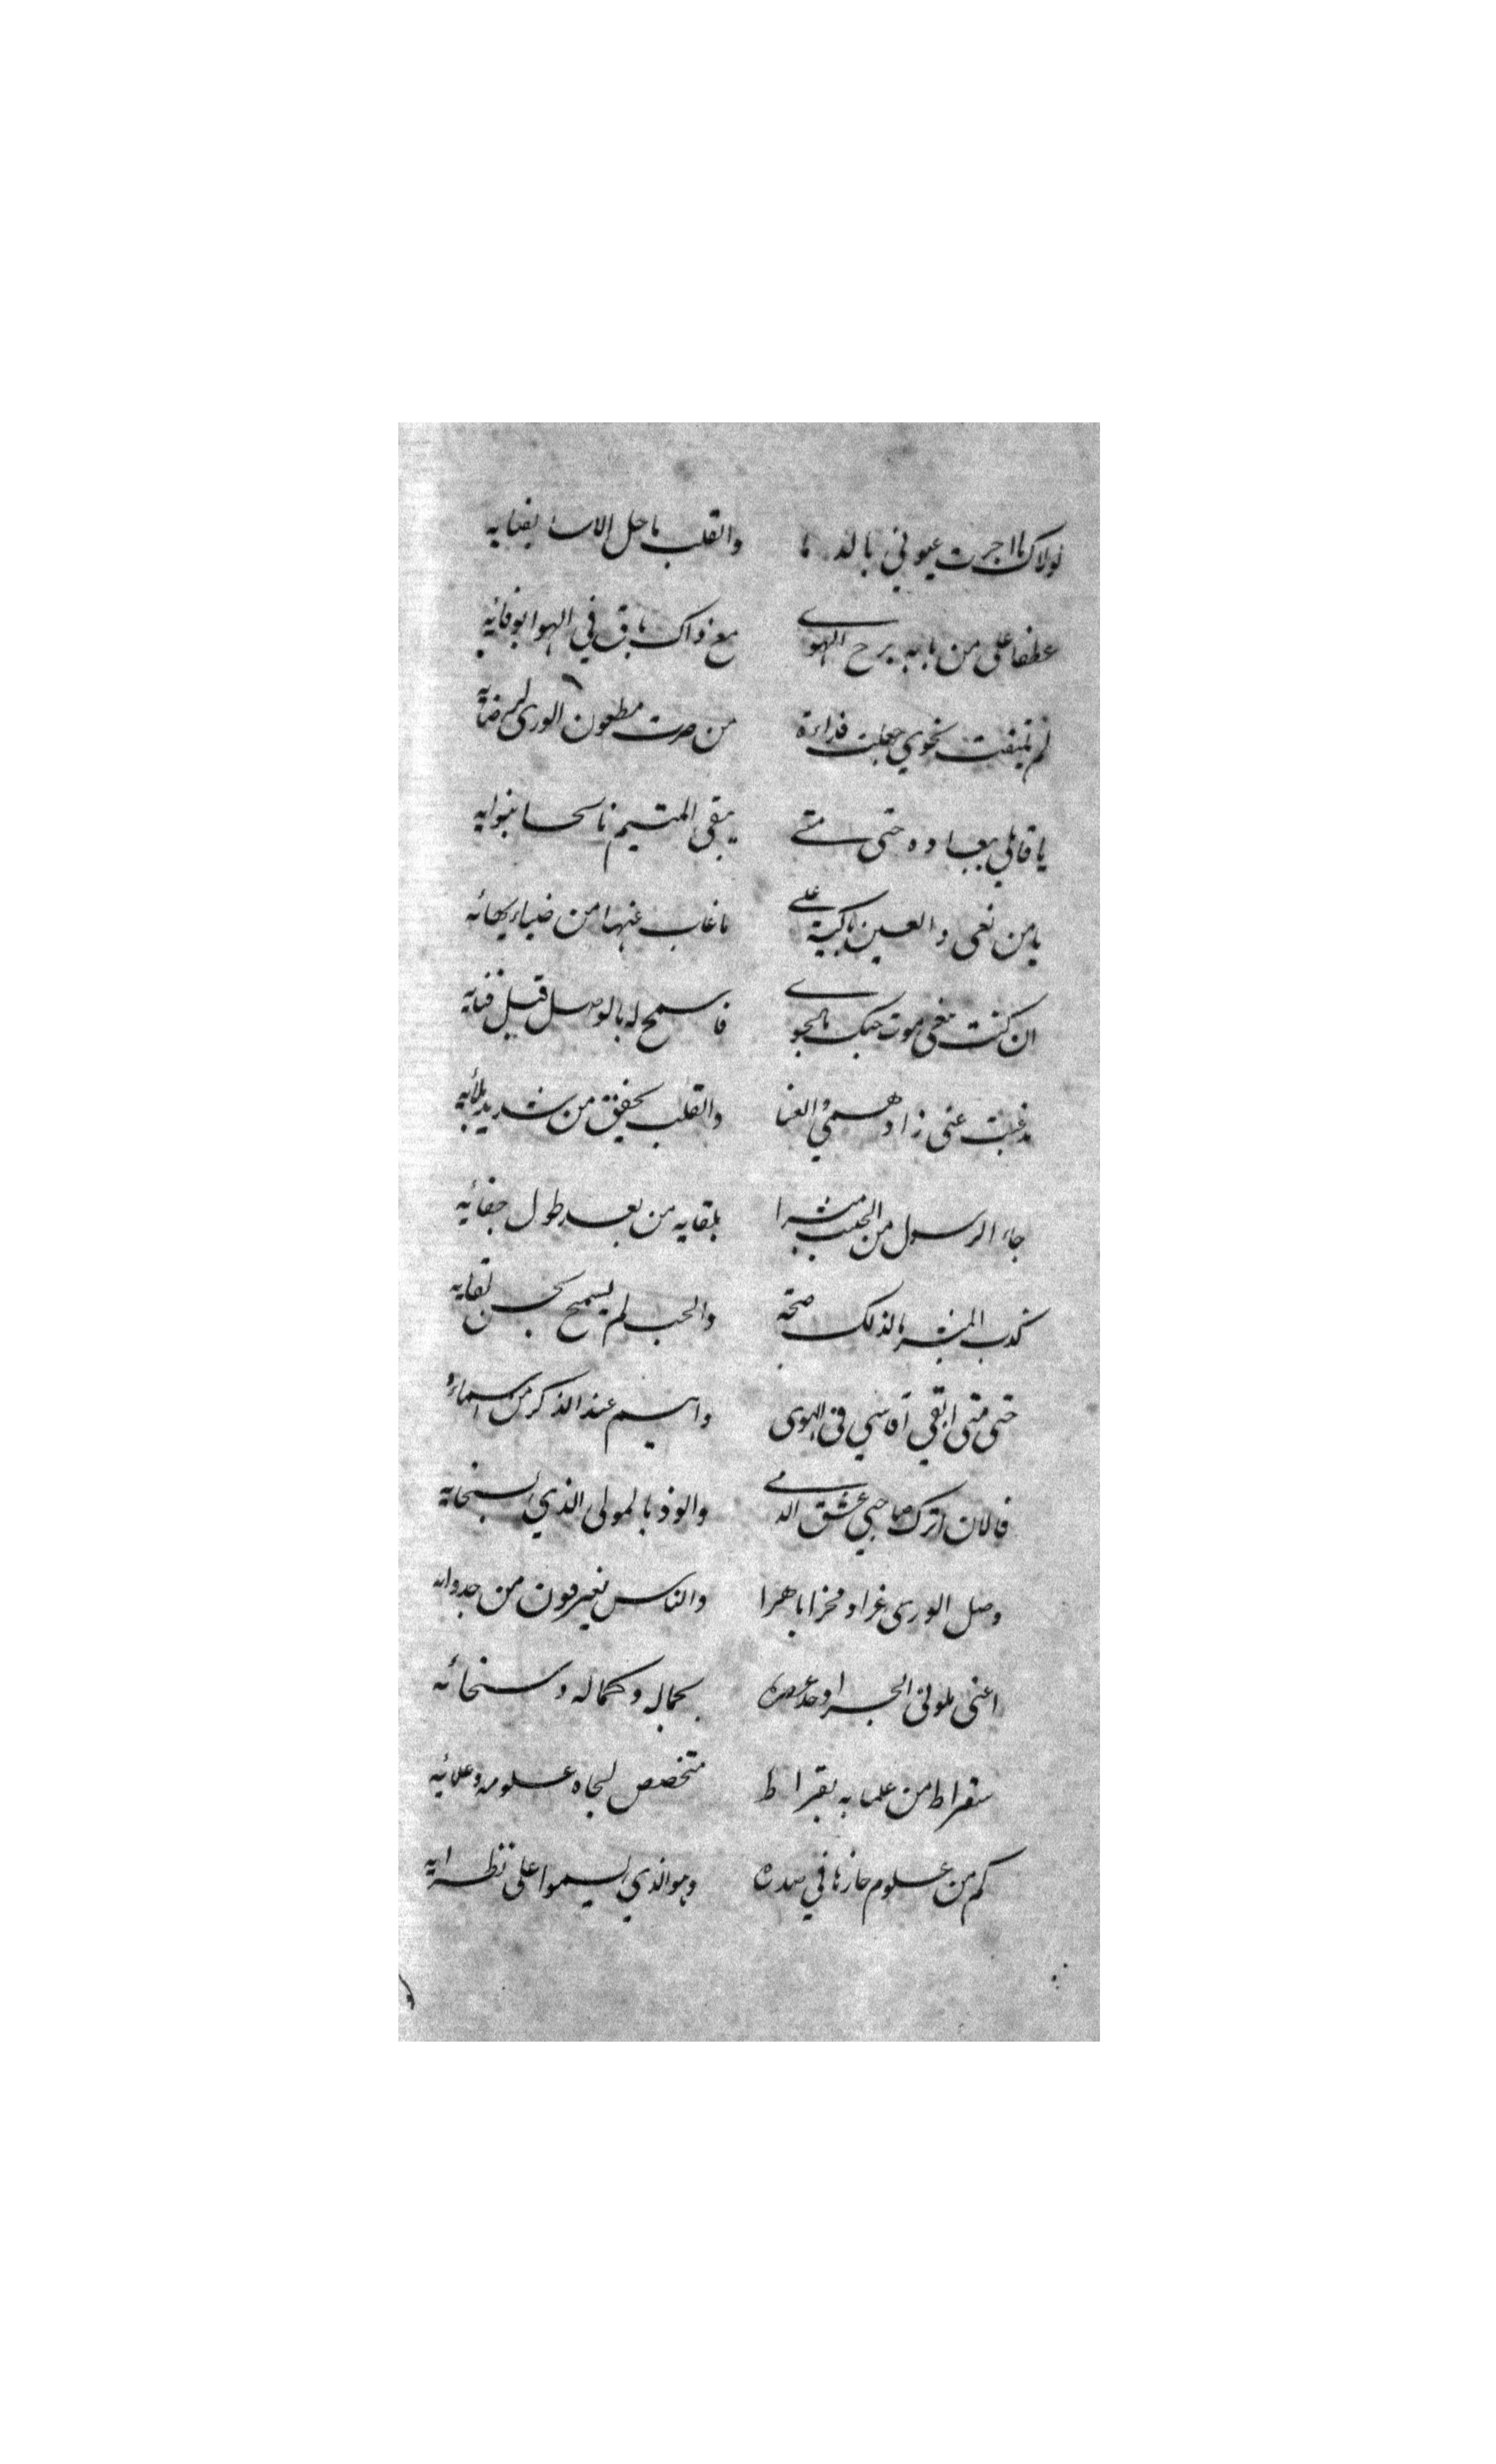 لولاك ما اجرت عيوني بالدما والقلب ما حل الاسا بفنايه
عطفا على من بابه برح الهوى مع ذاك باق في الهوا بوفائه
لم تلتفت نحوي جعلت فداءه من صرت مطعون الورى لمرضاته
يا قاتلي ببعاده حتى متى يبقى المتيم نائحا بنوايه
يا من نعى والعين باكية على ما غاب عنها من ضياء بهائه
ان كنت تبغي موت حبك بالجوى فاسمح له بالوصل قبل فنايه
مذ غبت عني زاد همي والعنا والقلب يخفق من شديد بلائه
جاء الرسول من الحبيب مبشرا بلقايه من بعد طول جفائه
كذب المبشر ما لذلك صحة والحب لم يسمح بحسن لقايه
حتى متى ابقى اقاسي في الهوى واهيم عند الذكر من اسمائه
فالان اترك صاحبي عشق الدمى والوذ بالمولى الذي بسخايه
وصل الورى عزا وفخرا باهرا والناس يغترفون من جدواه
اعني بلوتي البحر اوحد عصره بجماله وكماله وسخائه
سقراط من علمايه بقراط متخصص لجاه علومه وعلائه
كم من علوم حازها في صدره وهو الذي يسموا على نظرايه